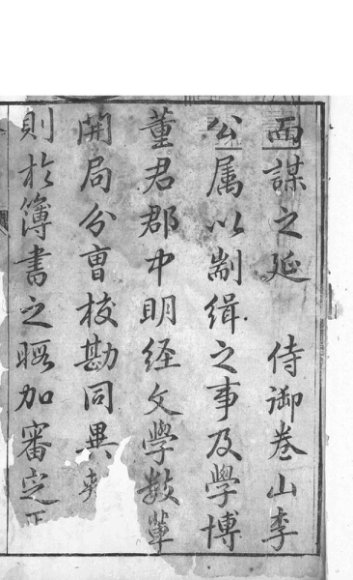 面謀之延 侍御卷山李
公属以剬緝之事及學博
董君郡中明経文學數輩
開局分曺校勘同異
則於簿書之暇加審定